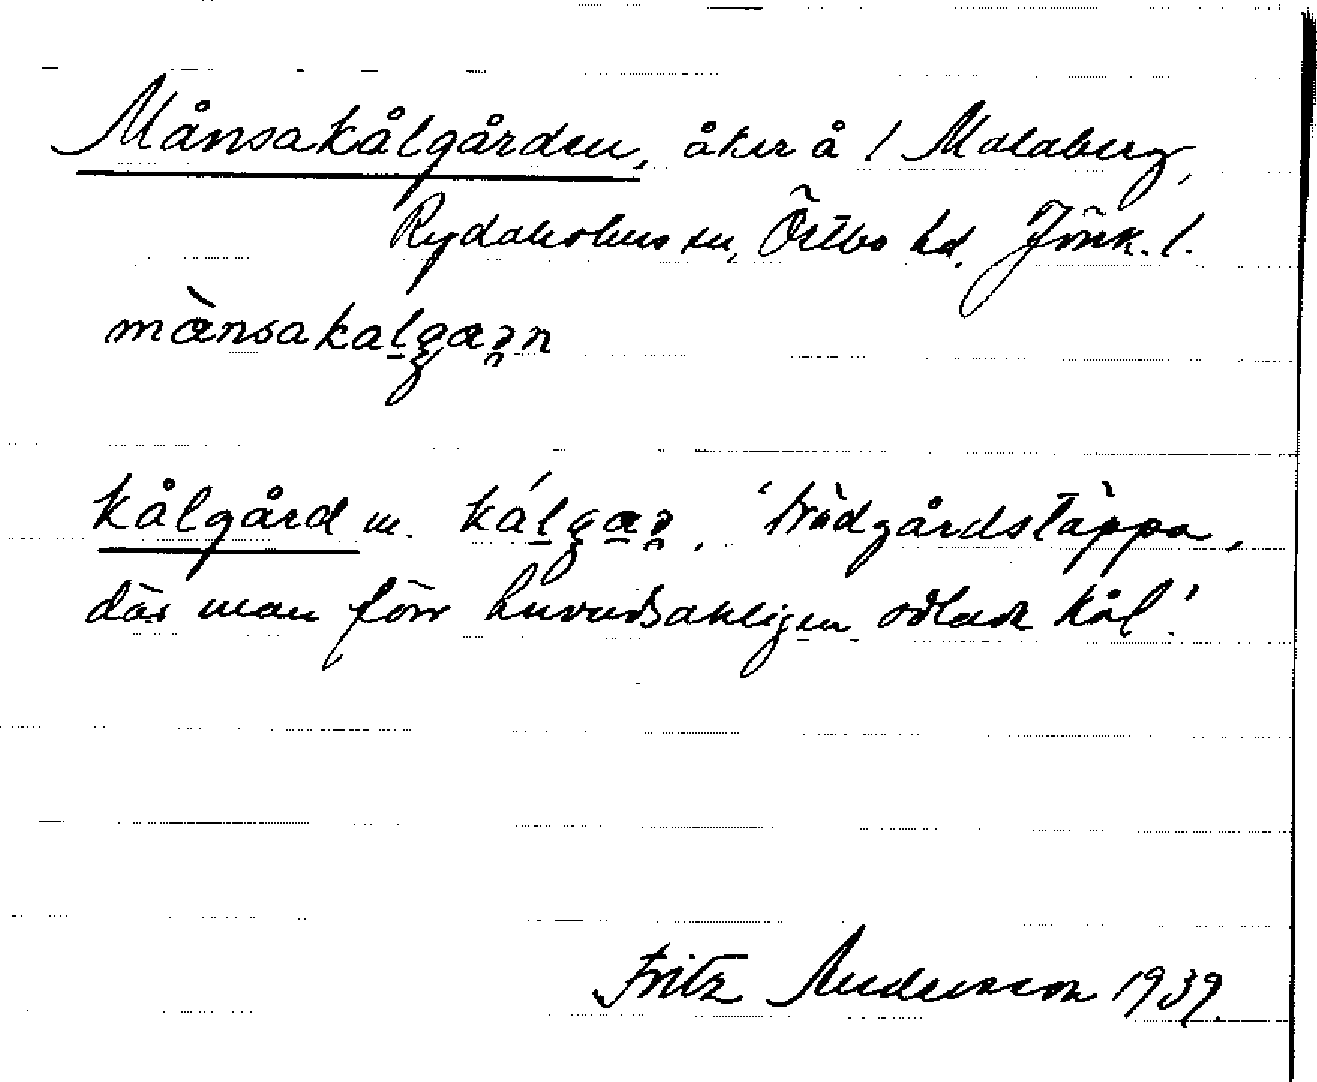 Månsakålgården, åker å 1 Målaberg,
Rydaholms sn, Östbo hd. Jönk. l.
månsakalgaɂn
kålgård m. kálgaɂ, 'trädgårdstäppa,
där man förr huvudsakligen odlade kål'.
Fritz Andersson 1939.